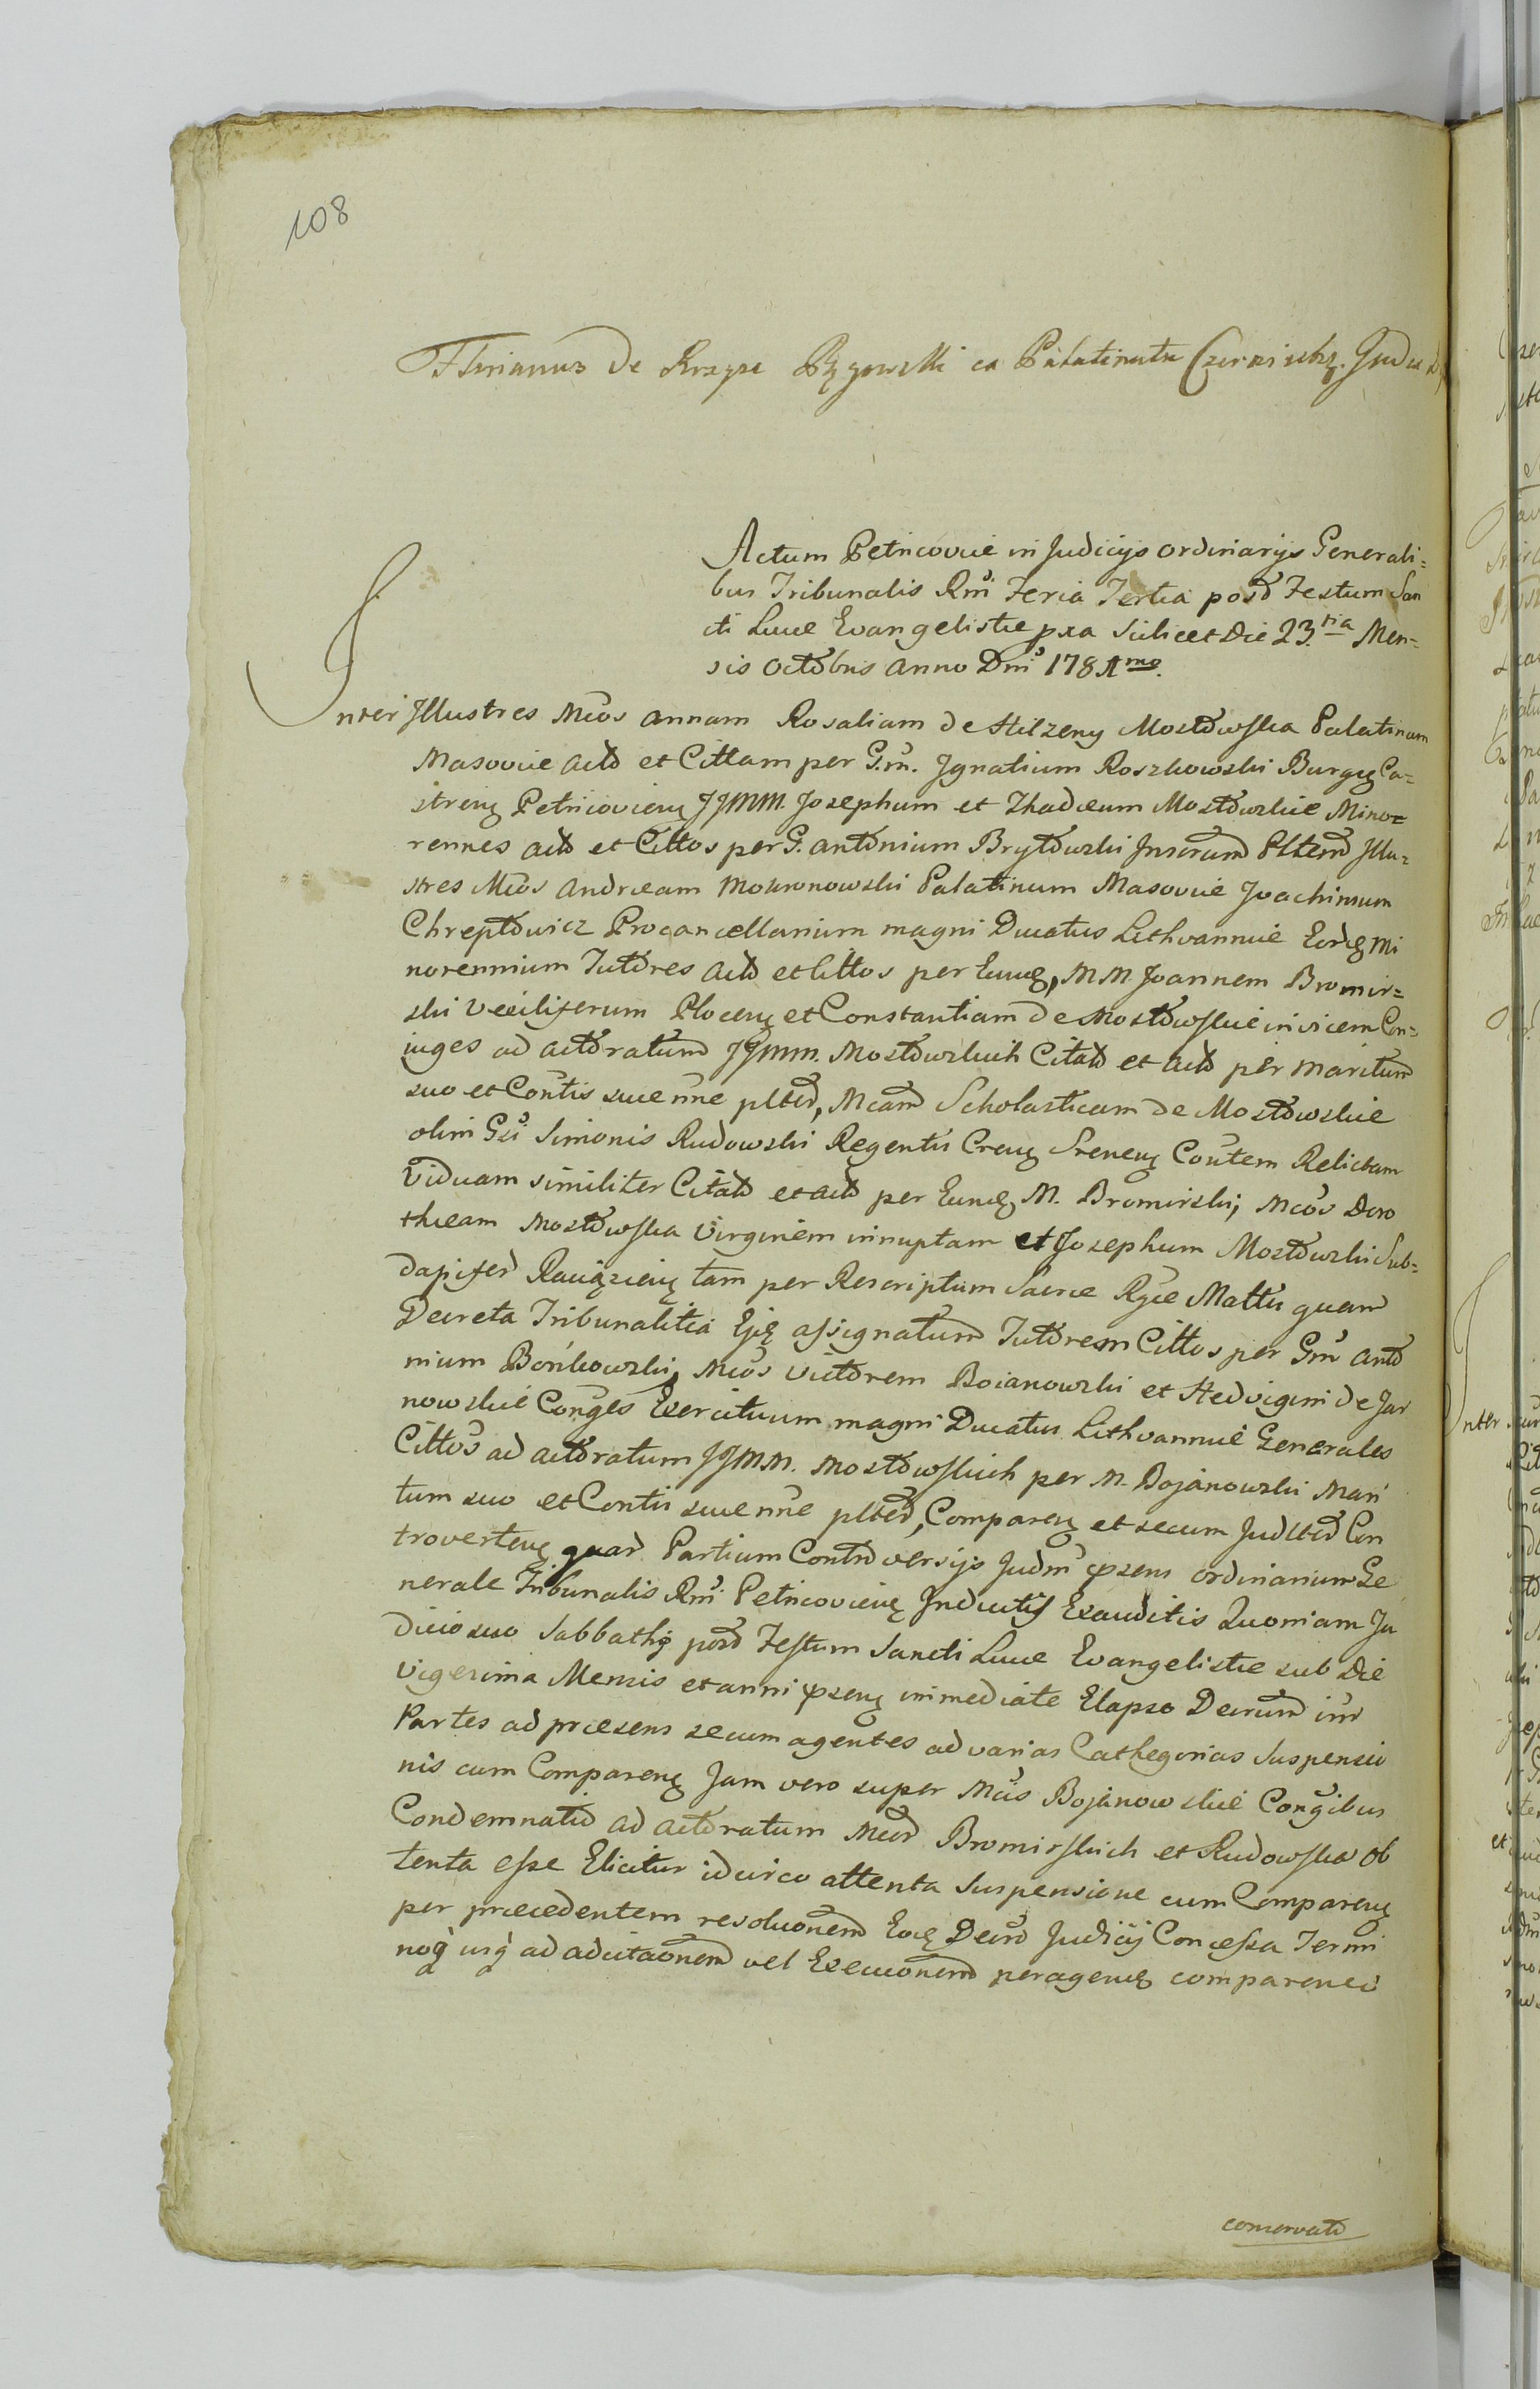 108
Florianus de Krzyże Pęgowski ex Palatinatu Czerniensi Judex
Actum Petricoviæ in Judicijs ordinarijs Generali=
bus Tribunalis Rni Feria Tertia post Festum San
cti Lucæ Evangelistæ pxa scilicet Die 23.tia Men=
sis Octobris Anno Dni 1781mo.
Inter Jllustres Mcos Annam Rosaliam de Hilzeny Mostowska Palatinam
Masoviæ Act et Cittam per G.m. Jgnatium Roszkowski Burgę Ca=
strenę Petricovienę JJMM. Josephum et Thadæum Mostowskie Mino=
rennes act et Cittos per G. Antonium Brytowski Jnscrum Pltem Jllu=
stres Mcos Andræam Mokronowski Palatinum Masoviæ Joachimum
Chreptowicz Procancellarium magni Ducatus Lithvanniæ Eordę Mi
norennium Tutores Act et Cittos per Eundę, MM Joannem Bromir=
ski Vexiliferum Plocenę et Constantiam de Mostowskie invicem Con=
juges ad actoratum JJMM. Mostowskich Citat et Act per maritum
suo et Contis suæ nne plter, Mcam Scholasticam de Mostowskie
olim Gsi Simonis Rudowski Regentis Crenę Srenenę Coniutem Relictam
Viduam similiter Citat et act per Eundę M. Bromirski, Mcos Doro
thæam Mostowska Virginem innuptam et Josephum Mostowski Sub=
dapiferd Raciązienę tam per Rescriptum Sacræ Rgiæ Mattis quam
Decreta Tribunalitia Ejsę assignatum Tutorem Cittos per Gm Anto
nium Bońkowski, Mcos Victorem Boianowski et Hedvigim de Jar
nowskie Conges Exercituum magni Ducatus Lithvanniæ Generales
Cittos ad actoratum JJMM. Mostowskich per M. Bojanowski Mari
tum suo et Contis suæ nne plter, Comparenę et secum Judlter Con
trovertenę quar Partium Controversijs Judm pzens ordinarium Ge
nerale Tribunalis Rni Petricovienę Jnductis Exauditis Quoniam Ju
dicio suo Sabbathi post Festum Sancti Lucæ Evangelistæ sub Die
Vigesima Mensis et anni pzenę immediate Elapso Decrum inr
Partes ad præsens secum agentes ad varias Cathegorias Suspensio
nis cum Comparenę Jam vero super Mcis Bojanowskie Congibus
Condemnato ad actoratum Mcor Bromirskich et Rudowska ob
tenta esse Elicitur idcirco attenta Suspensione cum Comparenę
per præcedentem resoluonem Eoę Decro Judicij Concessa Termi
noq usq ad adcitaonem vel Execuonem peragendę comparenci
conservato